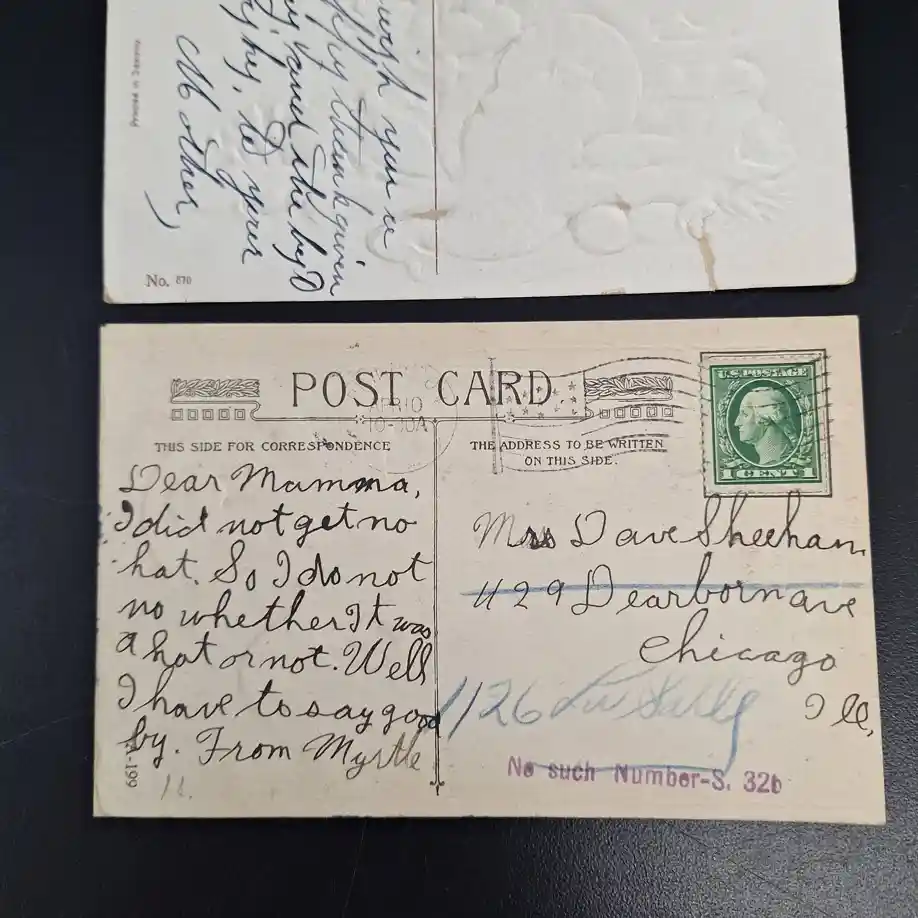 wish you a
happy thankgiven
and the by
by, to your
Mother,
Printed in Germany
No. 870
POST CARD
THIS SIDE FOR CORRESPONDENCE
THE ADDRESS TO BE WRITTEN
ON THIS SIDE.
U.S. POSTAGE
1 CENT 1
Dear Mamma,
I did not get no
hat. So I do not
no whether It was
a hat or not. Well
I have to say good
by. From Myrtle
Mrs Dave Sheehan
429 Dearborn ave
Chicago
Ill,
1126 La Salle
No such Number-S. 32b
A-199